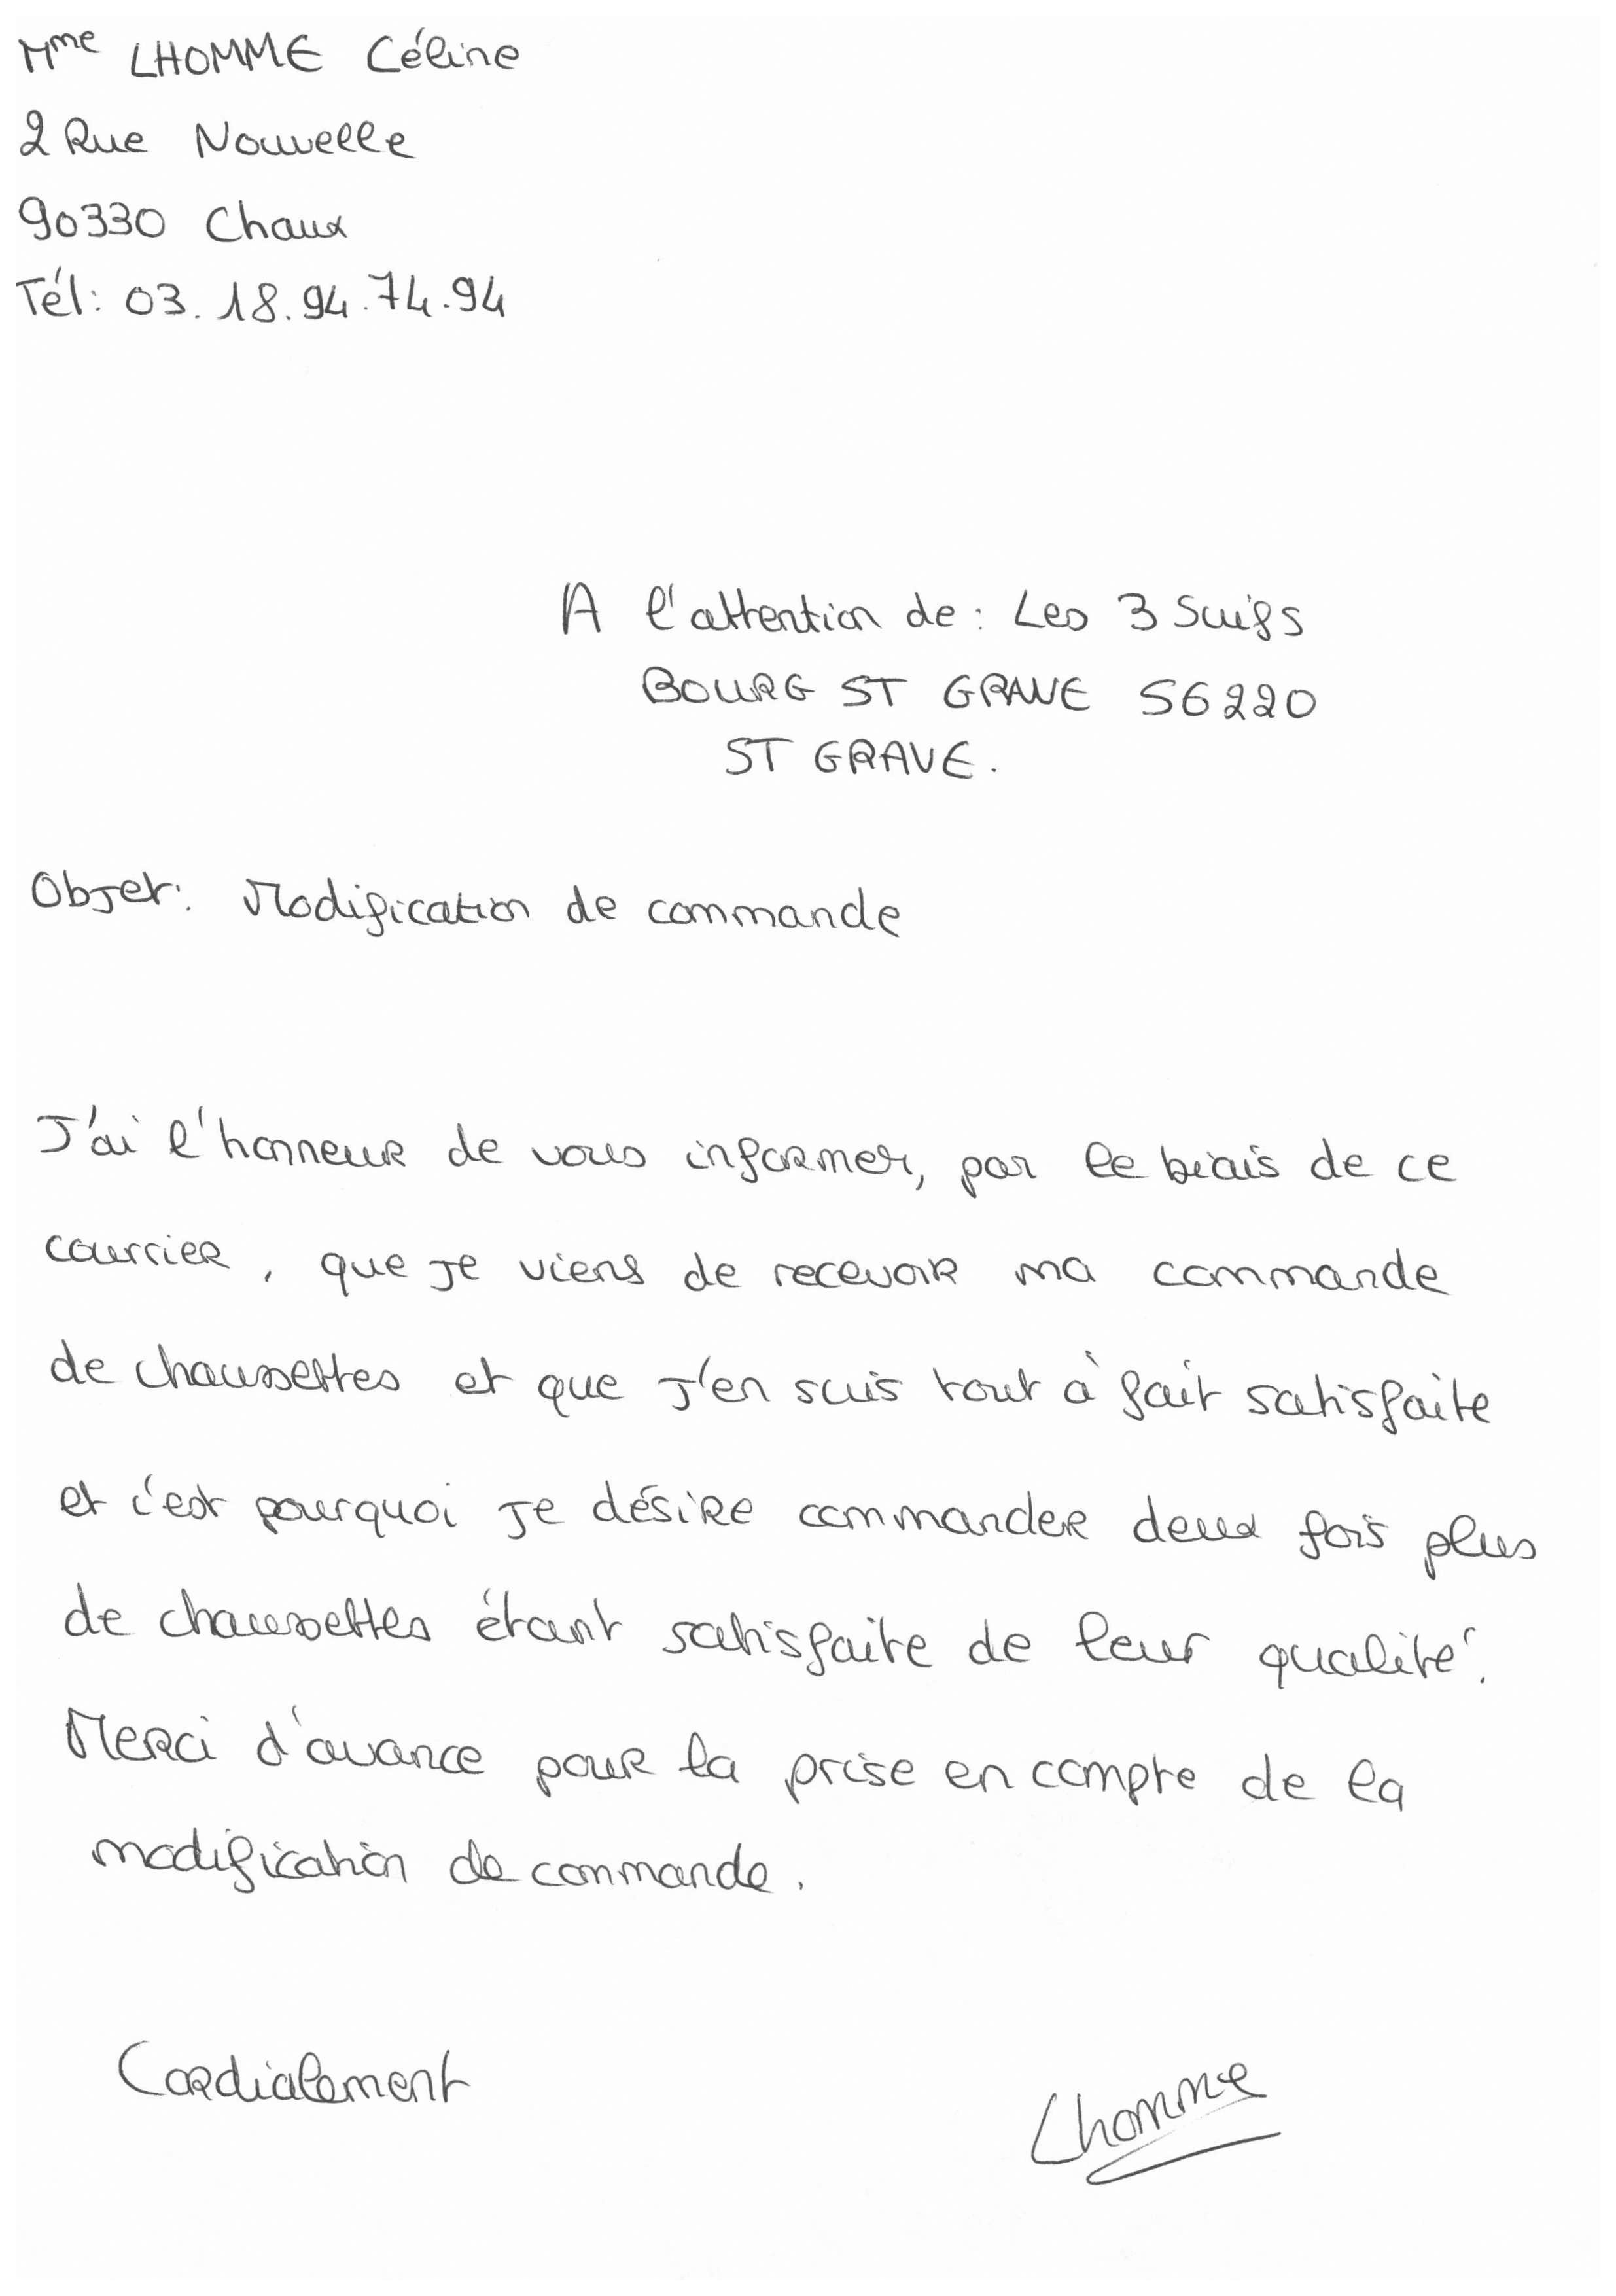 Mme LHOMME Céline
2 Rue Nouvelle
90330 Chaux
Tél: 03.18.94.74.94
A l'attention de : Les 3 Suifs
BOURG ST GRAVE 56220
ST GRAVE.
Objet: Modification de commande
J'ai l'honneur de vous informer, par le biais de ce
courrier, que je viens de recevoir ma commande
de chaussettes et que j'en suis tout à fait satisfaite
et c'est pourquoi je désire commander deux fois plus
de chaussettes étant satisfaite de leur qualité.
Merci d'avance pour la prise en compte de la
modification de commande.
Cordialement
Lhomme